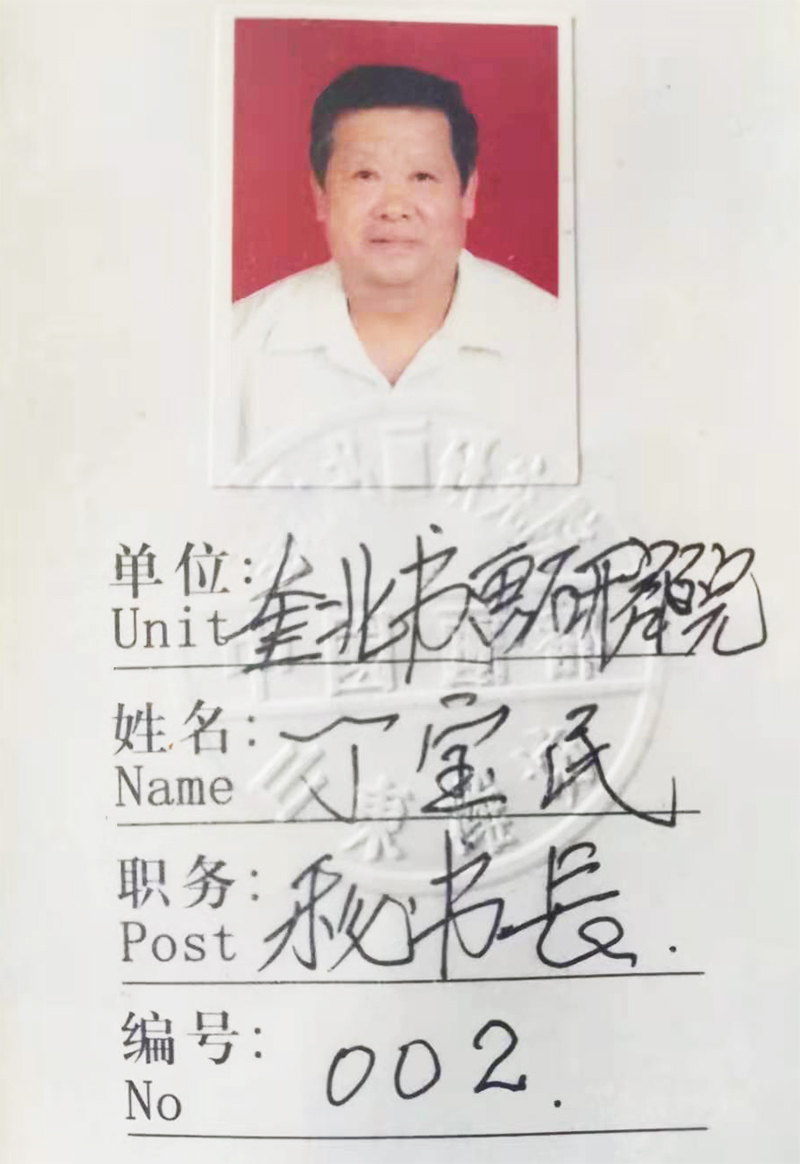 单位: 奎北书画研究院
Unit
姓名: 丁宝民
Name
职务: 秘书长.
Post
编号: 002.
No
中国